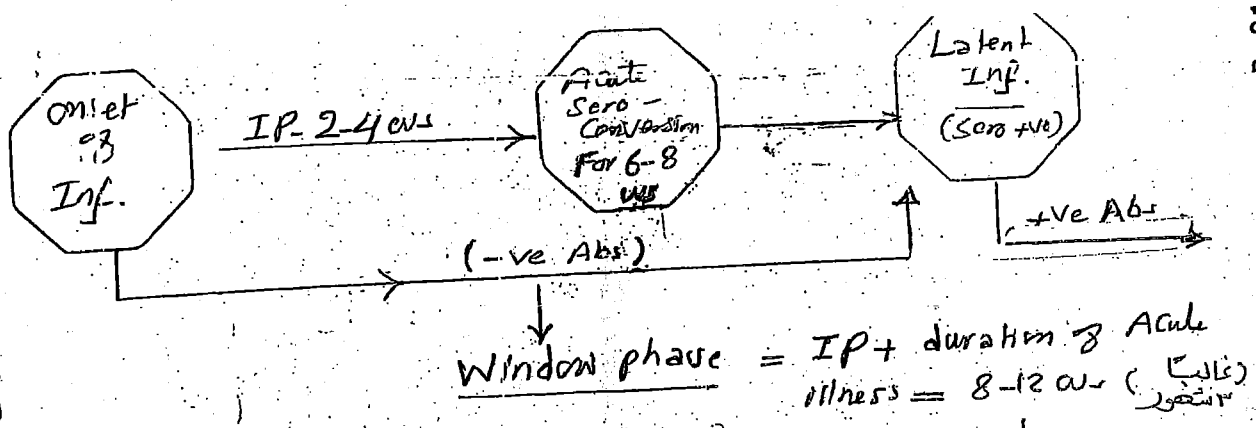 Onset
of
Inf.
IP-2-4 ws
Acute
Sero -
Conversion
For 6-8
ws
Latent
Inf.
(Sero +ve)
+ve Abs
(-ve Abs)
Window phase = IP + duration of Acute
illness = 8-12 ws (غالبًا
٣ شهور)